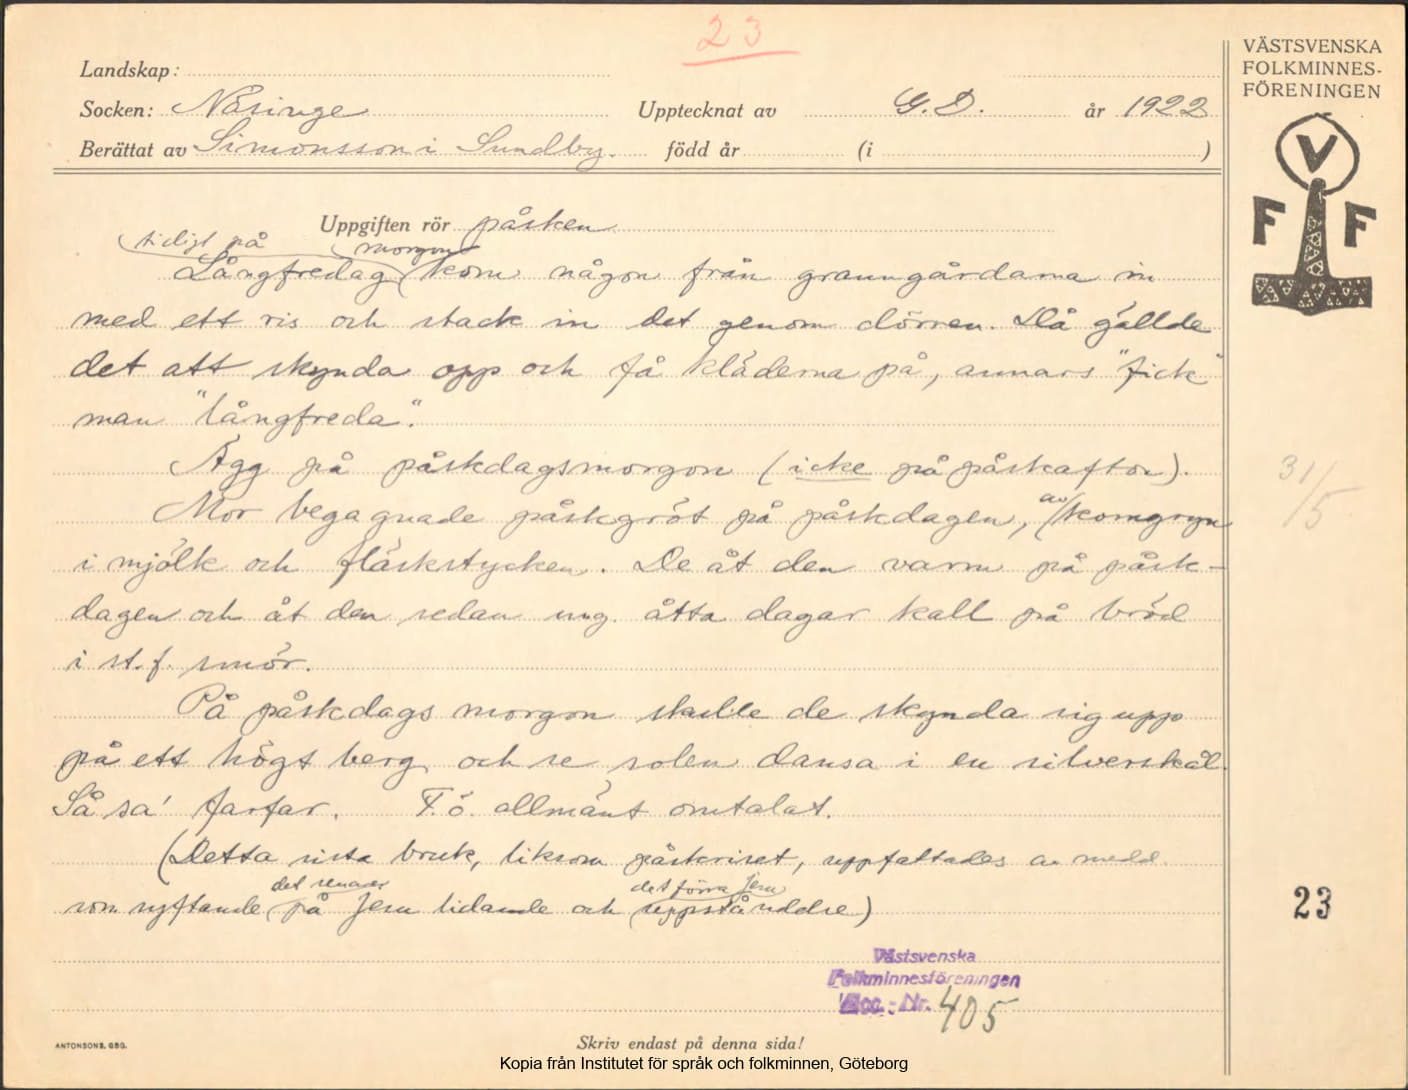 23
VÄSTSVENSKA
FOLKMINNES-
FÖRENINGEN
Landskap:
Socken: Näsinge Upptecknat av G. D. år 1922
Berättat av Simonsson i Sundby. född år (i )
V
F F
Uppgiften rör påsken
tidigt på morgonen
Långfredag kom någon från granngårdarna in
med ett ris och stack in det genom dörren. Då gällde
det att skynda opp och få kläderna på, annars "fick"
man "långfreda".
Ägg på påskdagsmorgon (icke på påskafton).
31/5
Mor begagnade påskgröt på påskdagen, av korngryn
i mjölk och fläskstycken. De åt den varm på påsk-
dagen och åt den sedan ung. åtta dagar kall på bröd
i st. f. smör.
På påskdags morgon skulle de skynda sig upp
på ett högt berg och se solen dansa i en silverskål.
Så sa' farfar. F. ö. allmänt omtalat.
(Detta sista bruk, liksom påskriset, uppfattades av medd.
det senare det förra Jesu
som syftande på Jesu lidande och uppståndelse)
23
Västsvenska
Folkminnesföreningen
Acc.-Nr. 405
ANTONSONS, GBG.
Skriv endast på denna sida!
Kopia från Institutet för språk och folkminnen, Göteborg